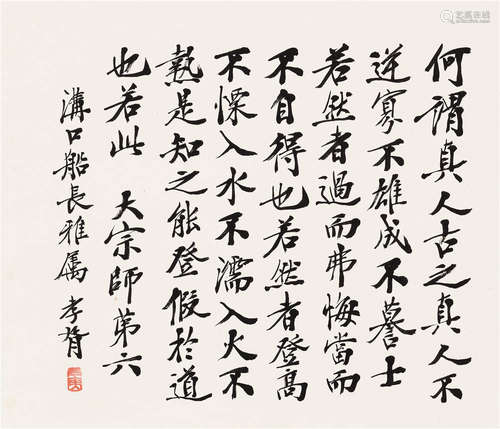 何謂真人古之真人不
逆寡不雄成不謩士
若然者過而弗悔當而
不自得也若然者登高
不慄入水不濡入火不
熱是知之能登假於道
也若此 大宗師第六
溝口船長雅属 孝胥